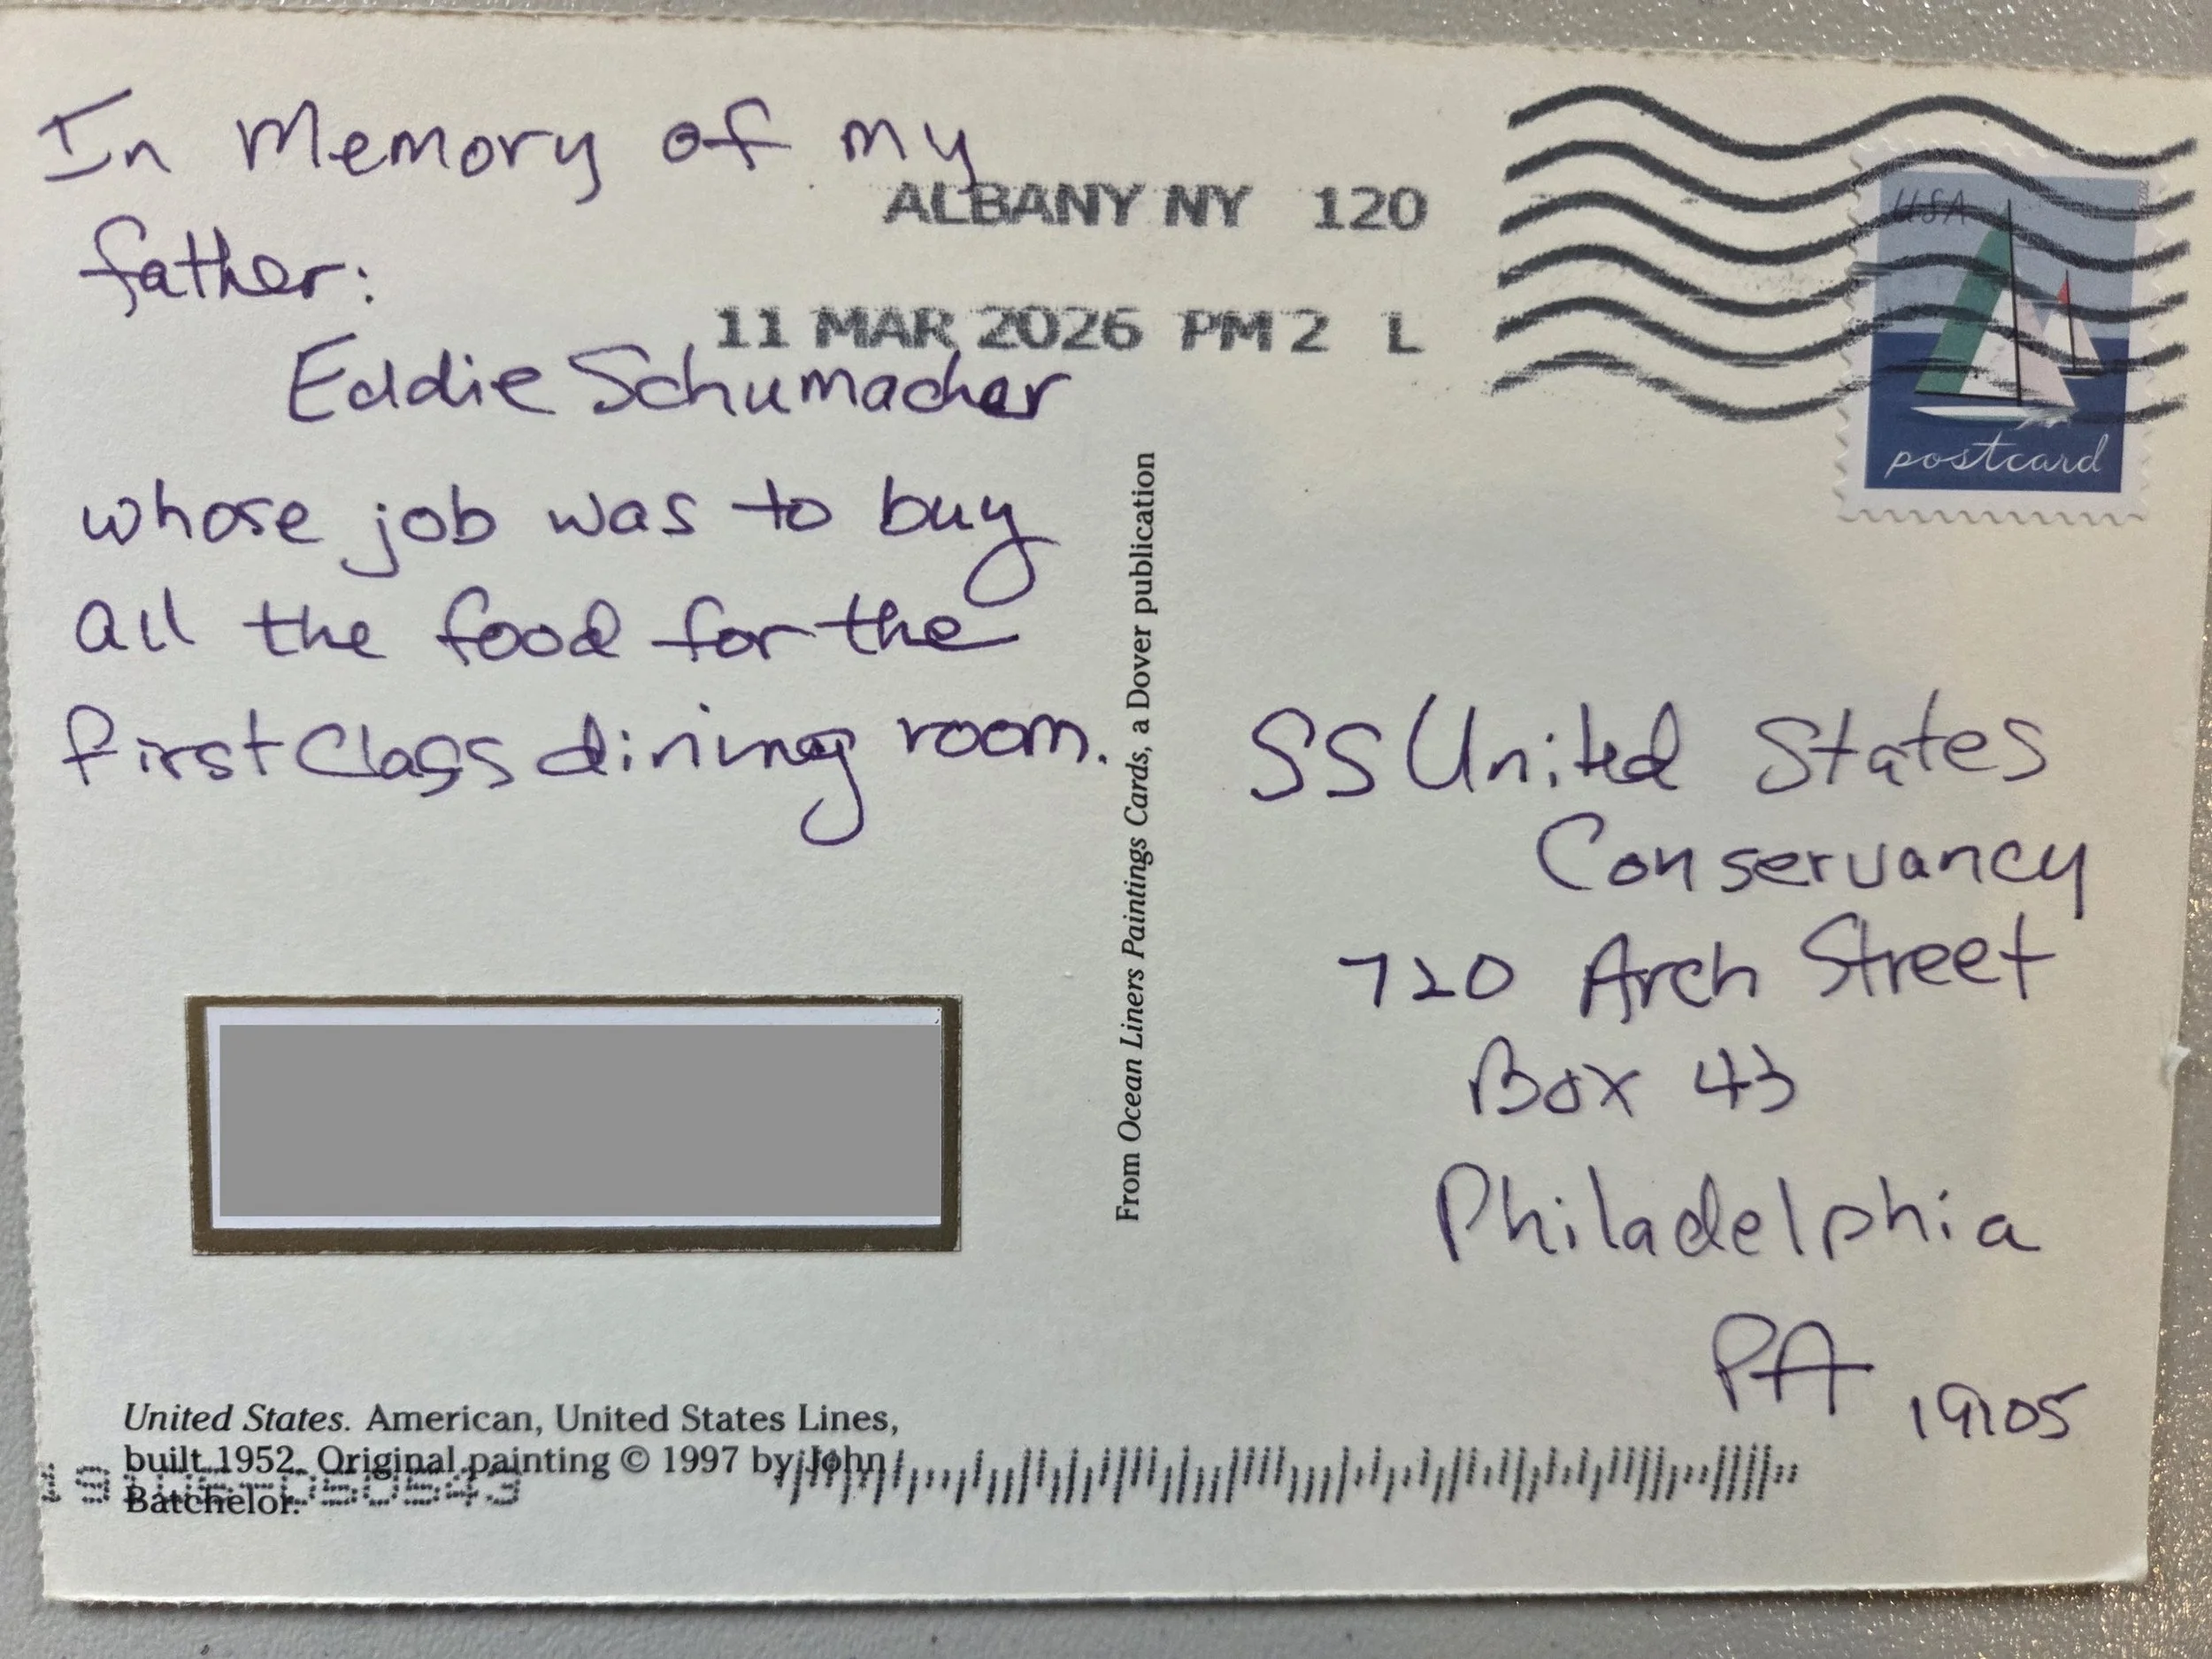 In Memory of my
father:
Eddie Schumacher
whose job was to buy
all the food for the
first Class dining room.
ALBANY NY 120
11 MAR 2026 PM 2 L
USA
postcard
From Ocean Liners Paintings Cards, a Dover publication
SS United States
Conservancy
720 Arch Street
Box 43
Philadelphia
PA
19105
United States. American, United States Lines,
built 1952. Original painting © 1997 by John
Batchelor.